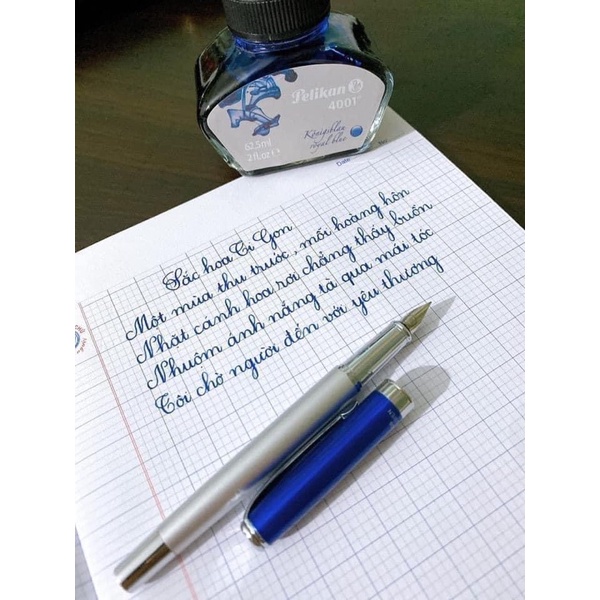 Pelikan
4001®
Königsblau
royal blue
62.5ml
2 fl.oz
Date
Sắc hoa Ti Gôn
Một mùa thu trước, mỗi hoàng hôn
Nhặt cánh hoa rơi chẳng thấy buồn
Nhuộm ánh nắng tà qua mái tóc
Tôi chờ người đến với yêu thương